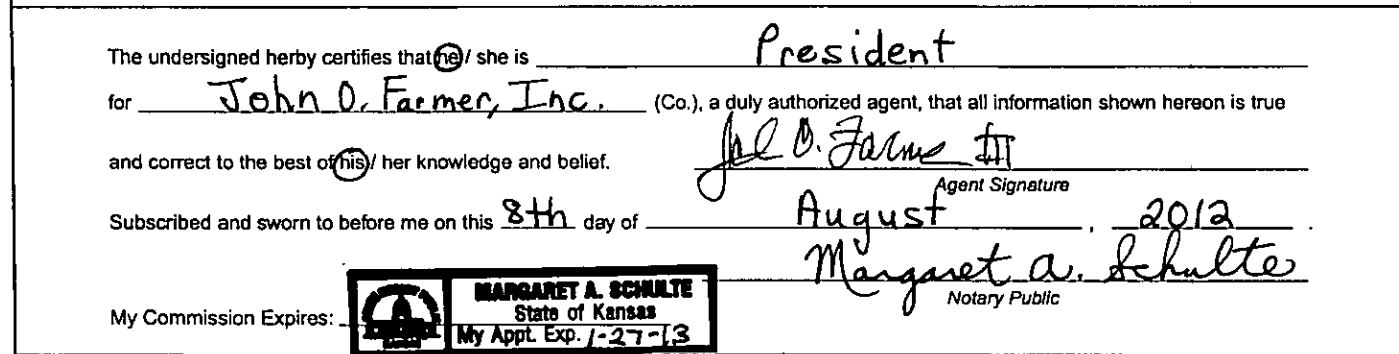 The undersigned herby certifies that he / she is President
for John O. Farmer, Inc. (Co.), a duly authorized agent, that all information shown hereon is true
and correct to the best of his / her knowledge and belief. John O. Farmer III
Agent Signature
Subscribed and sworn to before me on this 8th day of August , 2012 .
Margaret A. Schulte
Notary Public
MARGARET A. SCHULTE
State of Kansas
My Commission Expires: My Appt. Exp. 1-27-13